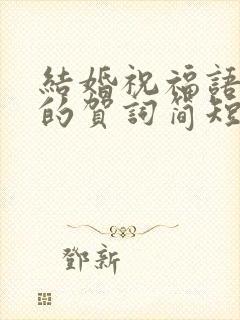 結婚祝福語
的賀詞簡短
鄧新